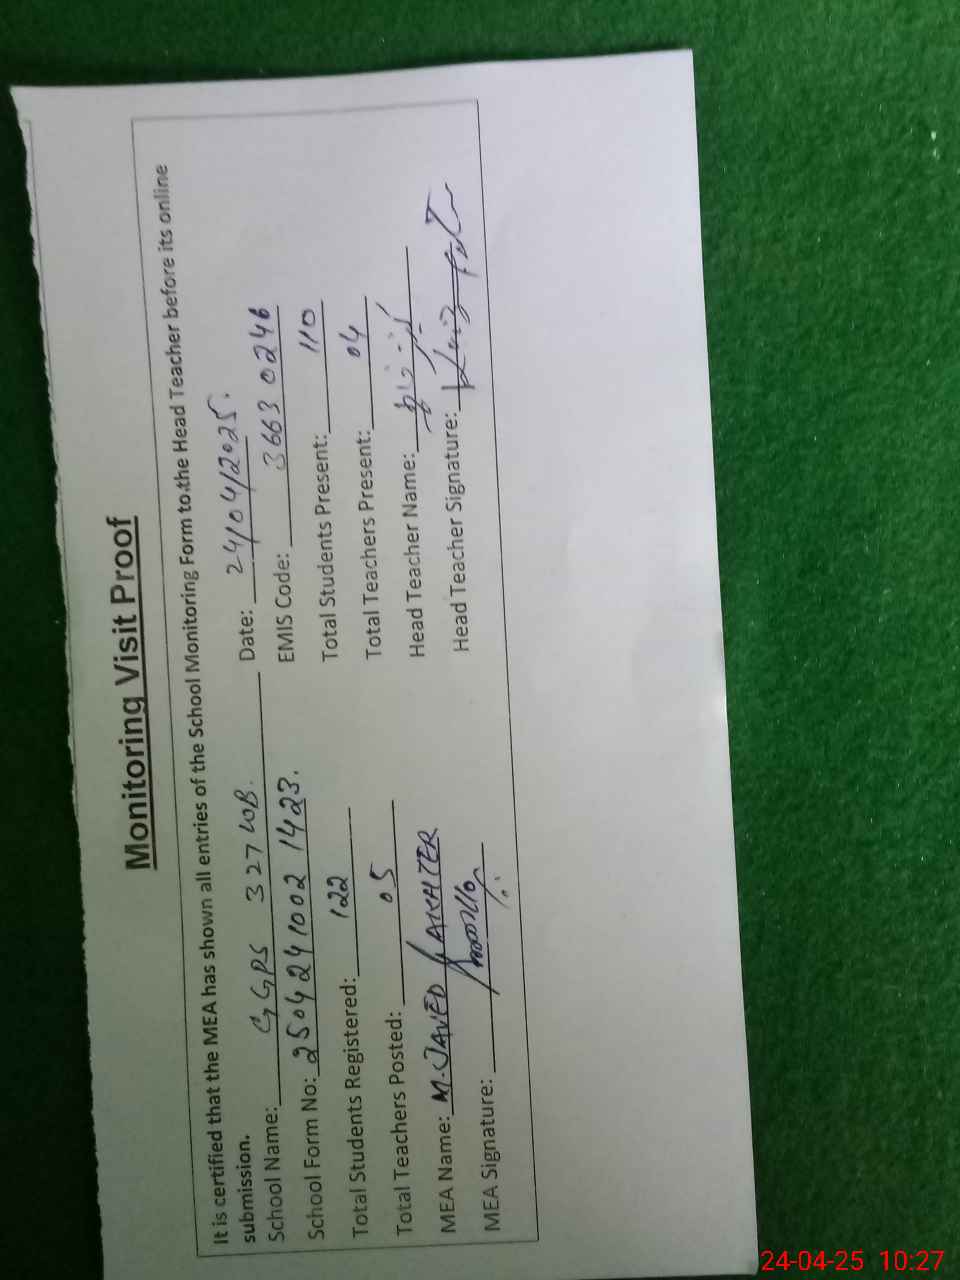 Monitoring Visit Proof
It is certified that the MEA has shown all entries of the School Monitoring Form to the Head Teacher before its online
submission.
School Name: GGPS 327 WB. Date: 24/04/2025.
School Form No: 25042410021423. EMIS Code: 36630246
Total Students Registered: 122 Total Students Present: 110
Total Teachers Posted: 05 Total Teachers Present: 04
MEA Name: M. JAVED AKHTER Head Teacher Name:
MEA Signature: Head Teacher Signature:
24-04-25 10:27